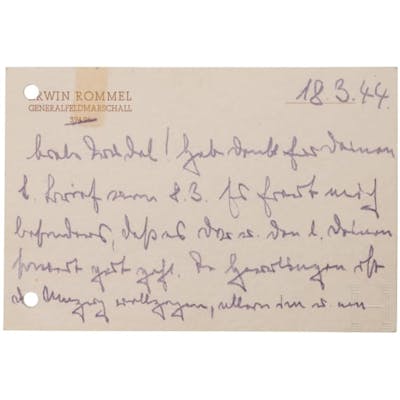 ERWIN ROMMEL
GENERALFELDMARSCHALL
18.3.44.
Hab Dank für Deinen
l. Brief vom 8.3. Es freut mich
besonders, daß es Dir u. den l. Deinen
soweit gut geht. In Herrlingen ist
der Umzug vollzogen, allein im u. um